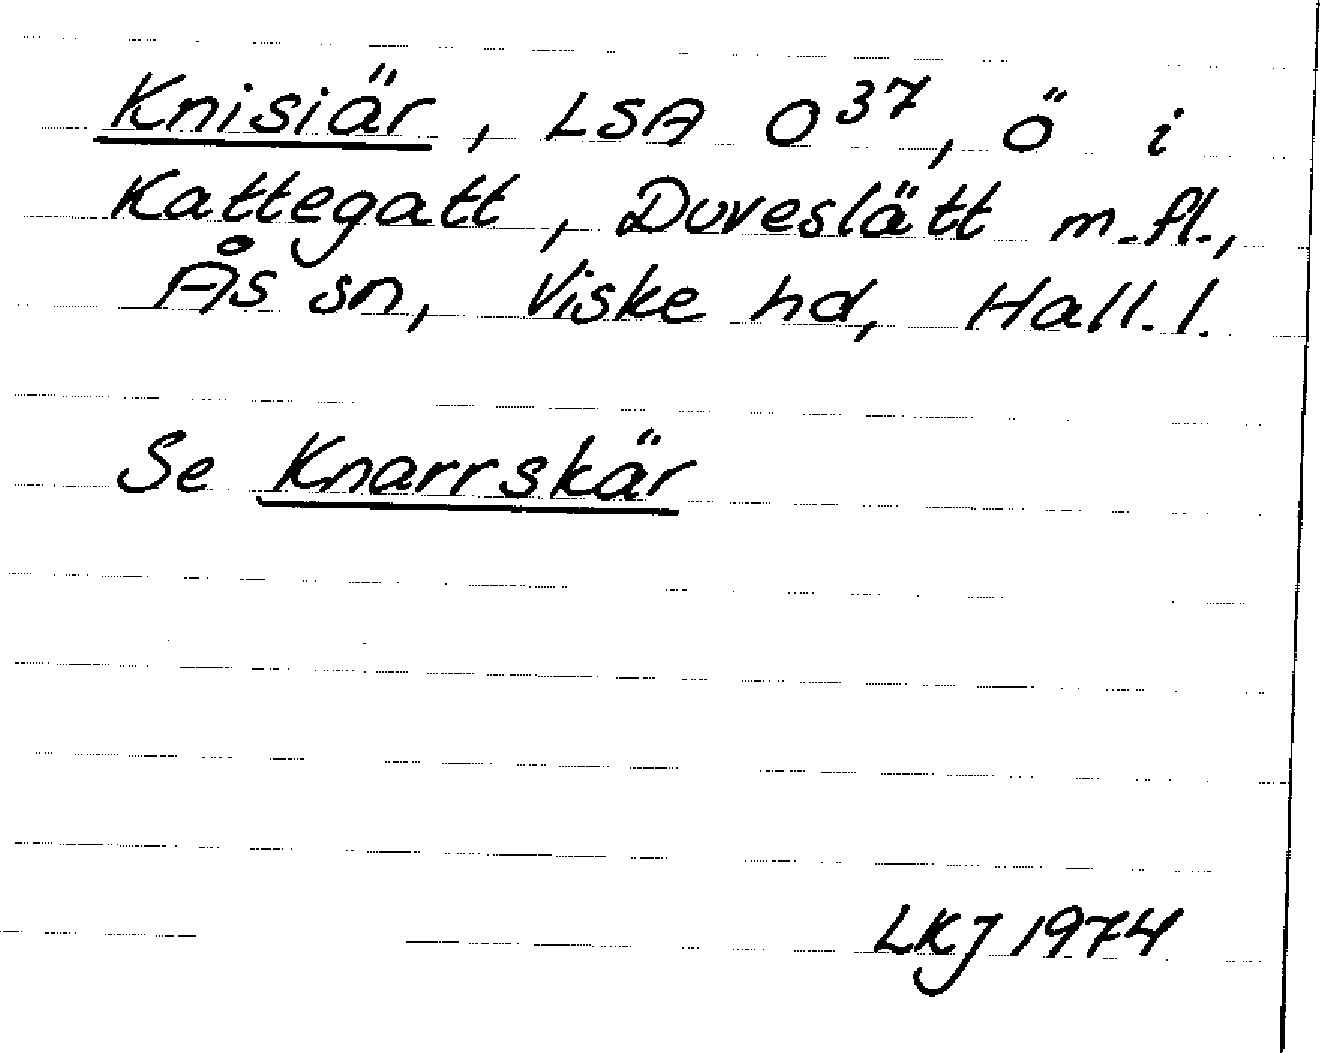 Knisiär, LSA O³⁷, ö i
Kattegatt, Duveslätt m.fl.,
Ås sn, Viske hd, Hall. l.
Se Knarrskär
LKJ 1974